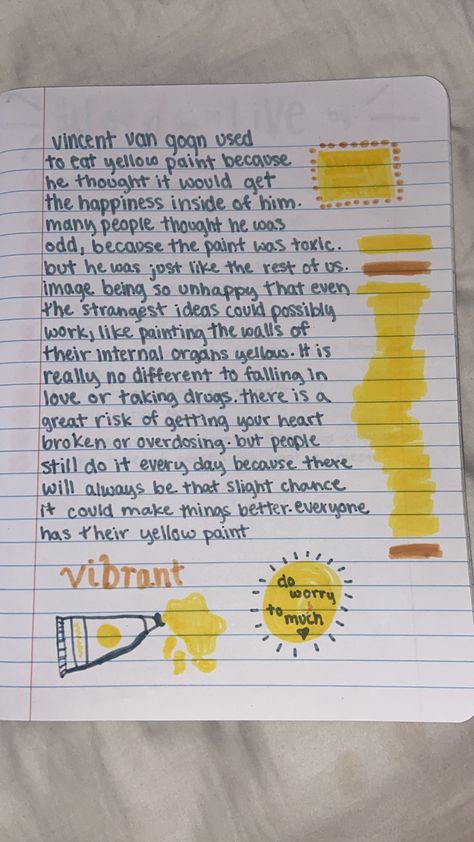 vincent van gogn used
to eat yellow paint because
he thought it would get
the happiness inside of him.
many people thought he was
odd, because the paint was toxic.
but he was just like the rest of us.
image being so unhappy that even
the strangest ideas could possibly
work, like painting the walls of
their internal organs yellow. It is
really no different to falling in
love or taking drugs. there is a
great risk of getting your heart
broken or overdosing. but people
still do it every day because there
will always be that slight chance
it could make things better. everyone
has their yellow paint
vibrant
do
worry
to
much